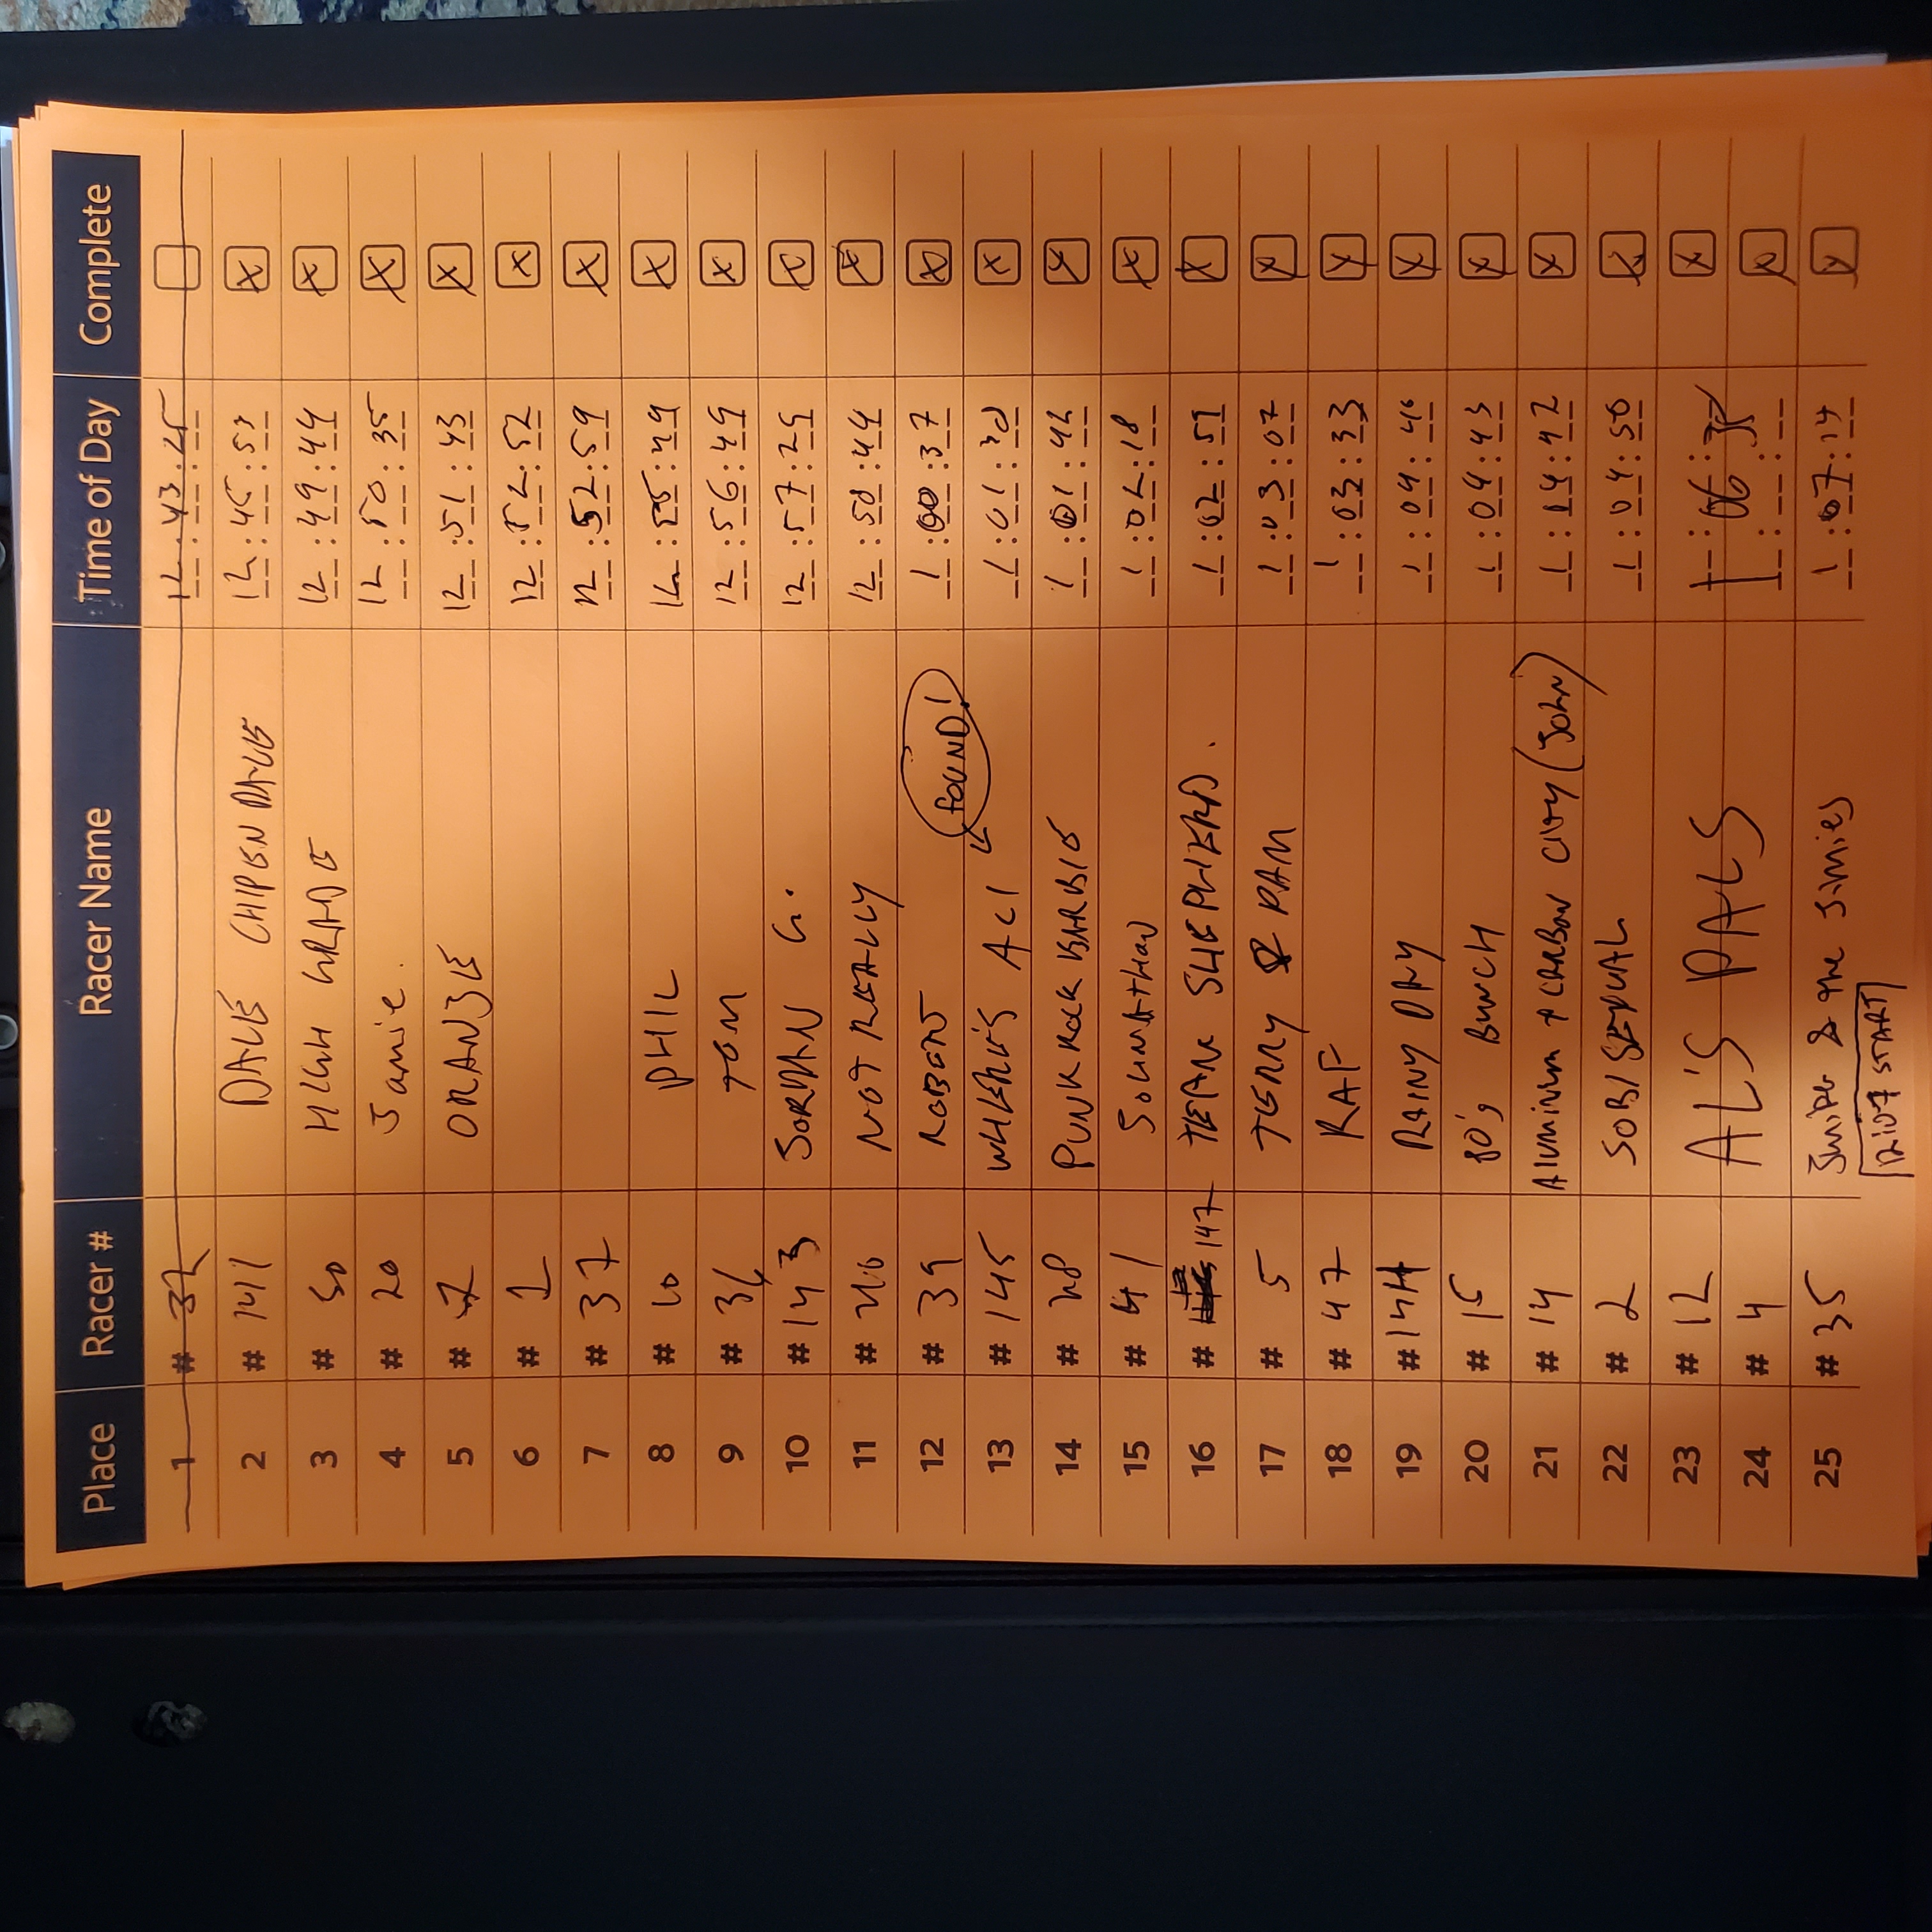 Place Racer # Racer Name Time of Day Complete
1 # 32 12:43:25
2 # 141 DALE CHIPENDALE 12:45:53
3 # 50 HIGH GRADE 12:49:44
4 # 20 Jamie. 12:50:35
5 # 7 ORANJE 12:51:43
6 # 1 12:52:52
7 # 37 12:52:59
8 # 10 PHIL 12:55:49
9 # 36 TOM 12:56:49
10 # 143 JORDAN G. 12:57:29
11 # NOT REALLY 12:58:44
12 # 39 ROBERT 1:00:37
FOUND!
13 # 145 WHERE'S ACI 1:01:38
14 # 28 PUNK ROCK BARBIE 1:01:42
15 # 41 JOHNATHAN 1:02:18
16 # 147 TEAM SHEPHERD. 1:02:59
17 # 5 TERRY & PAM 1:03:07
18 # 47 RAF 1:03:33
19 # 144 RAINY DAY 1:04:40
20 # 15 80's BUNCH 1:04:43
21 # 14 ALUMINUM + CARBON CITY (JOHN) 1:14:42
22 # 2 SOBISEXUAL 1:04:50
23 # 12 AL'S PALS 1:06:35
24 # 4
25 # 35 & the Jimies 1:07:14
12:07 START